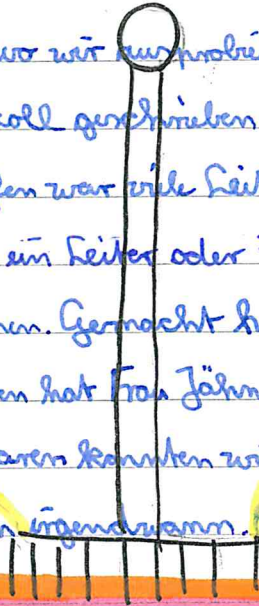 wo wir ausprobie
oll geschrieben
en war viele Leit
ein Leiter oder
en. Gemacht h
en hat Frau Jähn
aren konnten wi
n irgendwann.